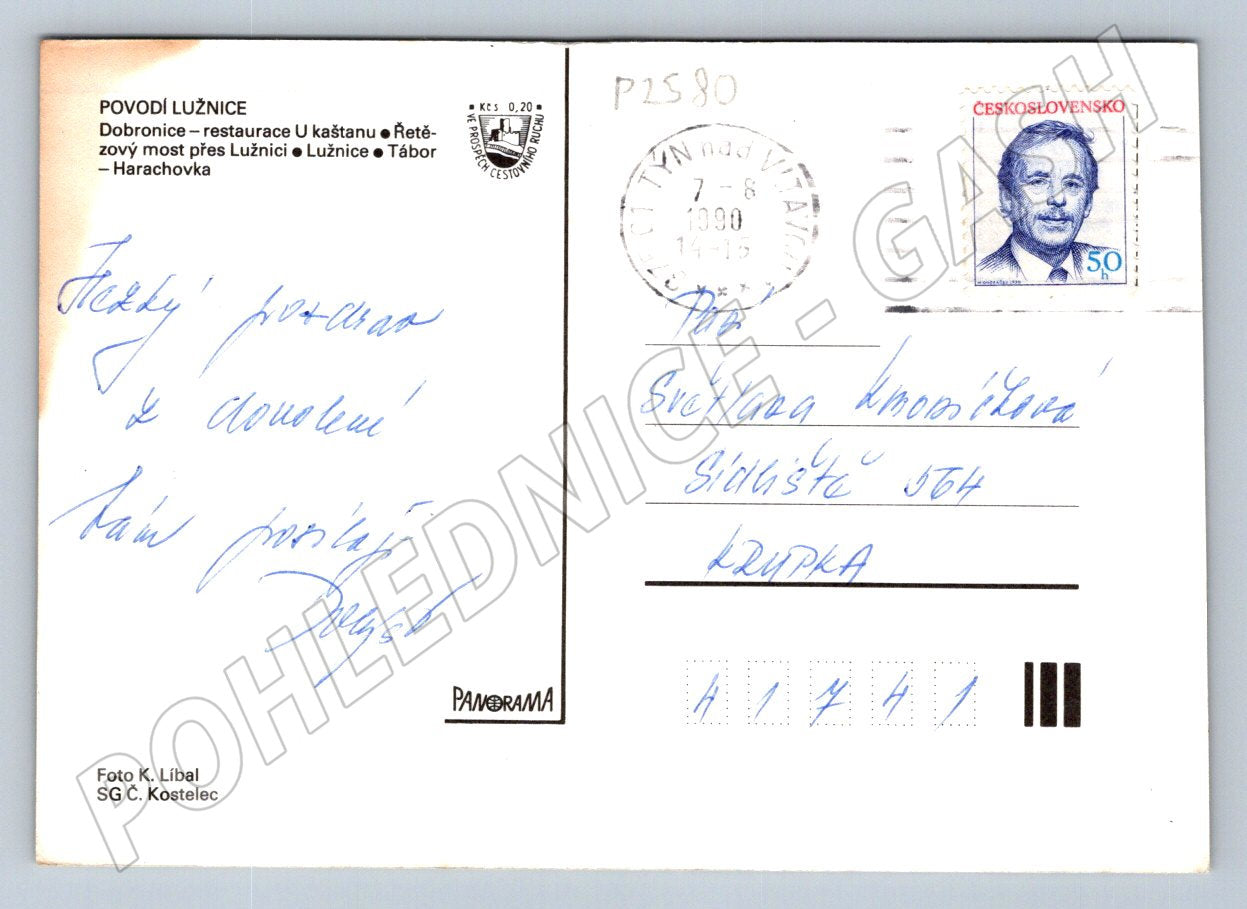 POVODÍ LUŽNICE
Dobronice – restaurace U kaštanu ● Řetě-
zový most přes Lužnici ● Lužnice ● Tábor
– Harachovka
Kčs 0,20
VE PROSPĚCH CESTOVNÍHO RUCHU
Hezký pozdrav
z dovolené
Vám posílají
PANORAMA
Foto K. Líbal
SG Č. Kostelec
P2580
TÝN nad VLTAVOU
7-8
1990
14-15
ČESKOSLOVENSKO
50
h
Světlana
Sídliště 564
KRUPKA
41741
POHLEDNICE - GASH